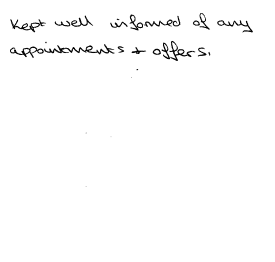 Kept well informed of any
appointments + offers.